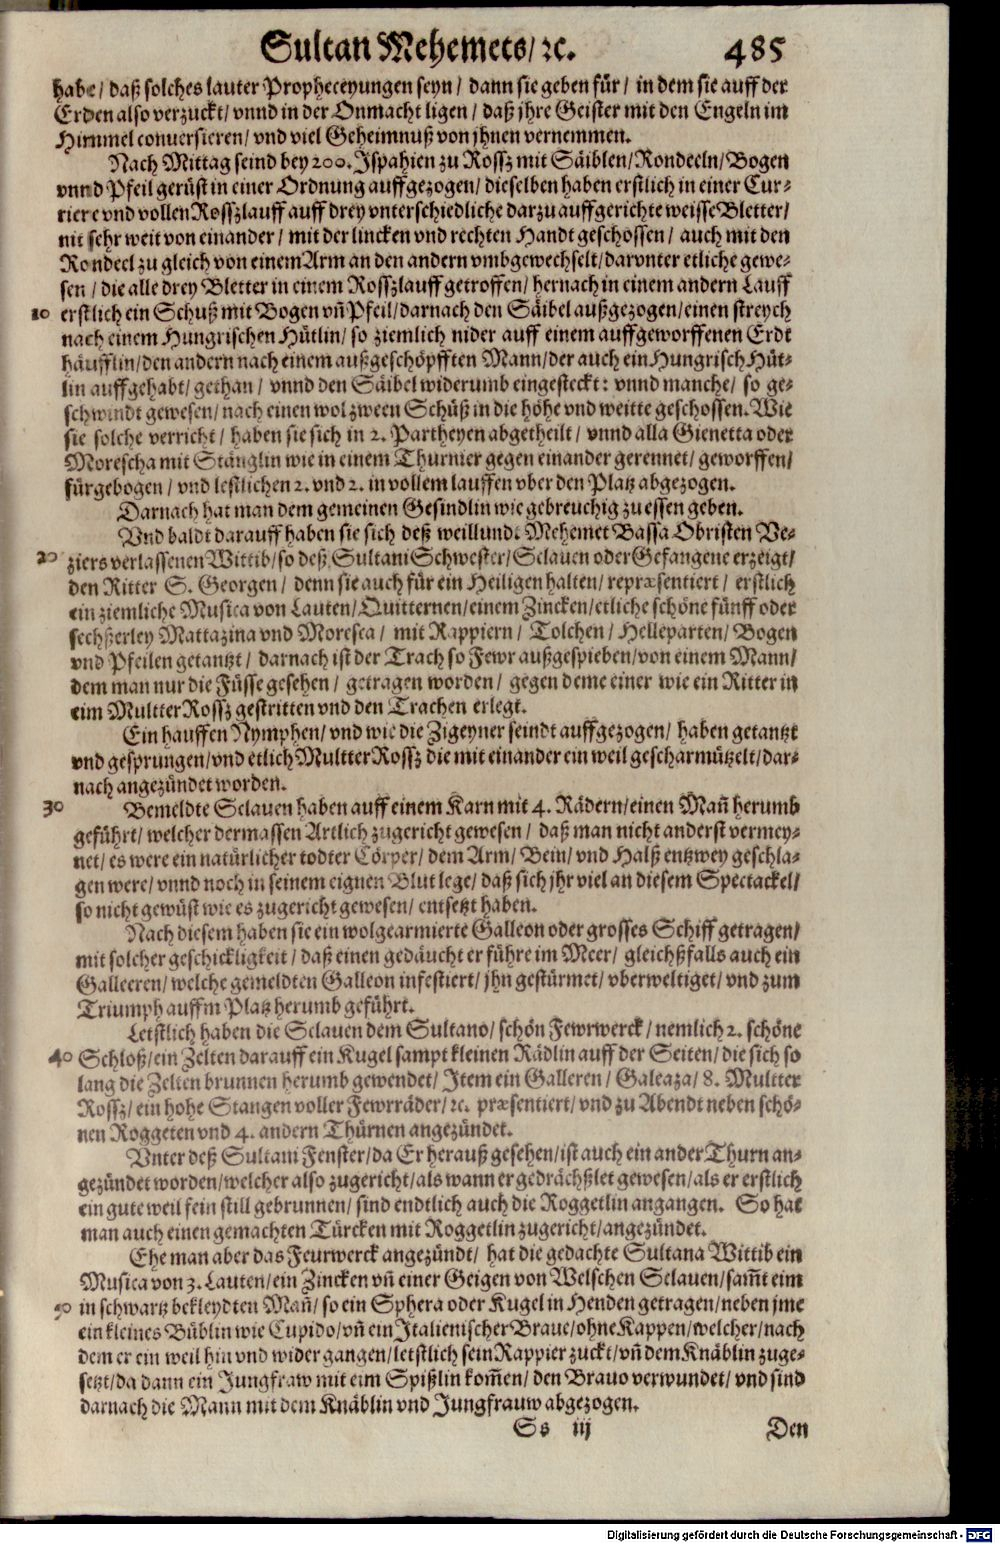 Sultan Mehemets/ ꝛc. 485
habe/ daß solches lauter Propheceyungen seyn/ dann sie geben für/ in dem sie auff der
Erden also verzuckt/ vnnd in der Onmacht ligen/ daß jhre Geister mit den Engeln im
Himmel conuersieren/ vnd viel Geheimnuß von jhnen vernemmen.
Nach Mittag seind bey 200. Ispahien zu Rossz mit Säiblen/ Rondeeln/ Bogen
vnnd Pfeil gerüst in einer Ordnung auffgezogen/ dieselben haben erstlich in einer Cur⸗
riere vnd vollen Rosszlauff auff drey vnterschiedliche darzu auffgerichte weisse Bletter/
nit sehr weit von einander/ mit der lincken vnd rechten Handt geschossen/ auch mit den
Rondeel zu gleich von einem Arm an den andern vmbgewechselt/ darvnter etliche gewe⸗
sen/ die alle drey Bletter in einem Rosszlauff getroffen/ hernach in einem andern Lauff
10 erstlich ein Schuß mit Bogen vñ Pfeil/ darnach den Säibel außgezogen/ einen streych
nach einem Hungrischen Hütlin/ so ziemlich nider auff einem auffgeworffenen Erdt
häufflin/ den andern nach einem außgeschöpfften Mann/ der auch ein Hungrisch Hüt⸗
lin auffgehabt/ gethan/ vnnd den Säibel widerumb eingesteckt: vnnd manche/ so ge⸗
schwindt gewesen/ nach einen wol zween Schüß in die höhe vnd weitte geschossen. Wie
sie solche verricht/ haben sie sich in 2. Partheyen abgetheilt/ vnnd alla Gienetta oder
Morescha mit Stänglin wie in einem Thurnier gegen einander gerennet/ geworffen/
fürgebogen/ vnd lestlichen 2. vnd 2. in vollem lauffen vber den Platz abgezogen.
Darnach hat man dem gemeinen Gesindlin wie gebreuchig zu essen geben.
Vnd baldt darauff haben sie sich deß weillundt Mehemet Bassa Obristen Ve⸗
20 ziers verlassenen Wittib/ so deß Sultani Schwester/ Sclauen oder Gefangene erzeigt/
den Ritter S. Georgen/ denn sie auch für ein Heiligen halten/ repræsentiert/ erstlich
ein ziemliche Musica von Lauten/ Quitternen/ einem Zincken/ etliche schöne fünff oder
sechßerley Mattazina vnd Moresca/ mit Rappiern/ Tolchen/ Helleparten/ Bogen
vnd Pfeilen getantzt/ darnach ist der Trach so Fewr außgespieben/ von einem Mann/
dem man nur die Füsse gesehen/ getragen worden/ gegen deme einer wie ein Ritter in
eim Multter Rossz gestritten vnd den Trachen erlegt.
Ein hauffen Nymphen/ vnd wie die Zigeyner seindt auffgezogen/ haben getantzt
vnd gesprungen/ vnd etlich Multter Rossz die mit einander ein weil gescharmützelt/ dar⸗
nach angezündet worden.
30 Bemeldte Sclauen haben auff einem Karn mit 4. Rädern/ einen Mañ herumb
geführt/ welcher dermassen Artlich zugericht gewesen/ daß man nicht anderst vermey⸗
net/ es were ein natürlicher todter Cörper/ dem Arm/ Bein/ vnd Halß entzwey geschla⸗
gen were/ vnnd noch in seinem eignen Blut lege/ daß sich jhr viel an diesem Spectackel/
so nicht gewüst wie es zugericht gewesen/ entsetzt haben.
Nach diesem haben sie ein wolgearmierte Galleon oder grosses Schiff getragen/
mit solcher geschickligkeit/ daß einen gedäucht er führe im Meer/ gleichßfalls auch ein
Galleeren/ welche gemeldten Galleon infestiert/ jhn gestürmet/ vberweltiget/ vnd zum
Triumph auffm Platz herumb geführt.
Letstlich haben die Sclauen dem Sultano/ schön Fewrwerck/ nemlich 2. schöne
40 Schloß/ ein Zelten darauff ein Kugel sampt kleinen Rädlin auff der Seiten/ die sich so
lang die Zelten brunnen herumb gewendet/ Item ein Galleren/ Galeaza/ 8. Multter
Rossz/ ein hohe Stangen voller Fewrräder/ ꝛc. præsentiert/ vnd zu Abendt neben schö⸗
nen Roggeten vnd 4. andern Thürnen angezündet.
Vnter deß Sultani Fenster/ da Er herauß gesehen/ ist auch ein ander Thurn an⸗
gezündet worden/ welcher also zugericht/ als wann er gedrächßlet gewesen/ als er erstlich
ein gute weil fein still gebrunnen/ sind endtlich auch die Roggetlin angangen. So hat
man auch einen gemachten Türcken mit Roggetlin zugericht/ angezündet.
Ehe man aber das Feurwerck angezündt/ hat die gedachte Sultana Wittib ein
Musica von 3. Lauten/ ein Zincken vñ einer Geigen von Welschen Sclauen/ sam̃t eim
50 in schwartz bekleydten Mañ/ so ein Sphera oder Kugel in Henden getragen/ neben jme
ein kleines Büblin wie Cupido/ vñ ein Italienischer Braue/ ohne Kappen/ welcher/ nach
dem er ein weil hin vnd wider gangen/ letstlich sein Rappier zuckt/ vñ dem Knäblin zuge⸗
setzt/ da dann ein Jungfraw mit eim Spißlin kom̃en/ den Brauo verwundet/ vnd sind
darnach die Mann mit dem Knäblin vnd Jungfrauw abgezogen.
Ss iij Den
Digitalisierung gefördert durch die Deutsche Forschungsgemeinschaft - DFG